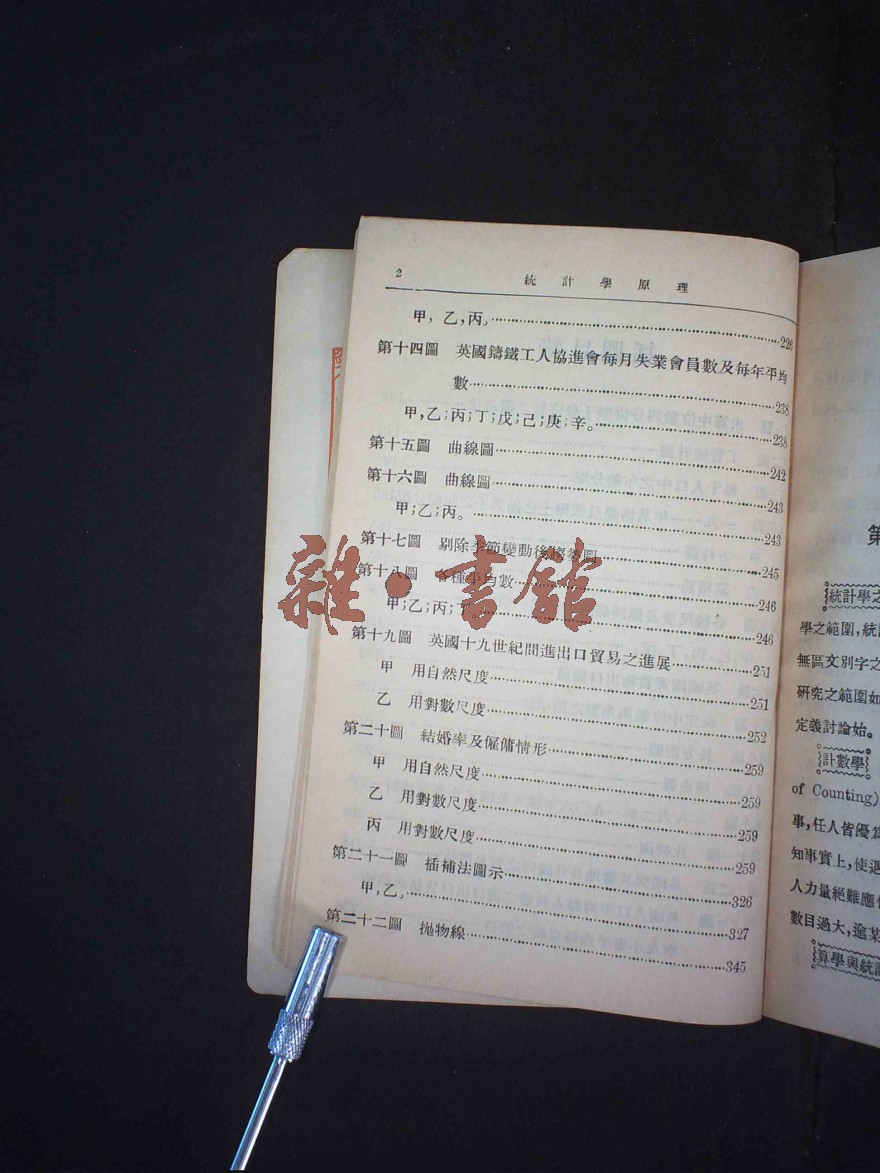 2 統計學原理
甲，乙，丙」……226
第十四圖 英國鑄鐵工人協進會每月失業會員數及每年平均
數……238
甲，乙；丙；丁；戊；己；庚；辛。……238
第十五圖 曲線圖……242
第十六圖 曲線圖……243
甲；乙；丙。……243
第十七圖 剔除季節變動後 圖……245
第十八圖 各種平均數……246
甲；乙；丙；……246
第十九圖 英國十九世紀間進出口貿易之進展……251
甲 用自然尺度……251
乙 用對數尺度……252
第二十圖 結婚率及僱傭情形……259
甲 用自然尺度……259
乙 用對數尺度……259
丙 用對數尺度……259
第二十一圖 插補法圖示……326
甲，乙。……327
第二十二圖 拋物線……345
雜·書館
第
統計學之
學之範圍，統
無區文別字之
研究之範圍如
定義討論始。
計數學
of Counting)
事，任人皆優爲
知事實上，使遇
人力量絕難應
數目過大，逾某
算學與統